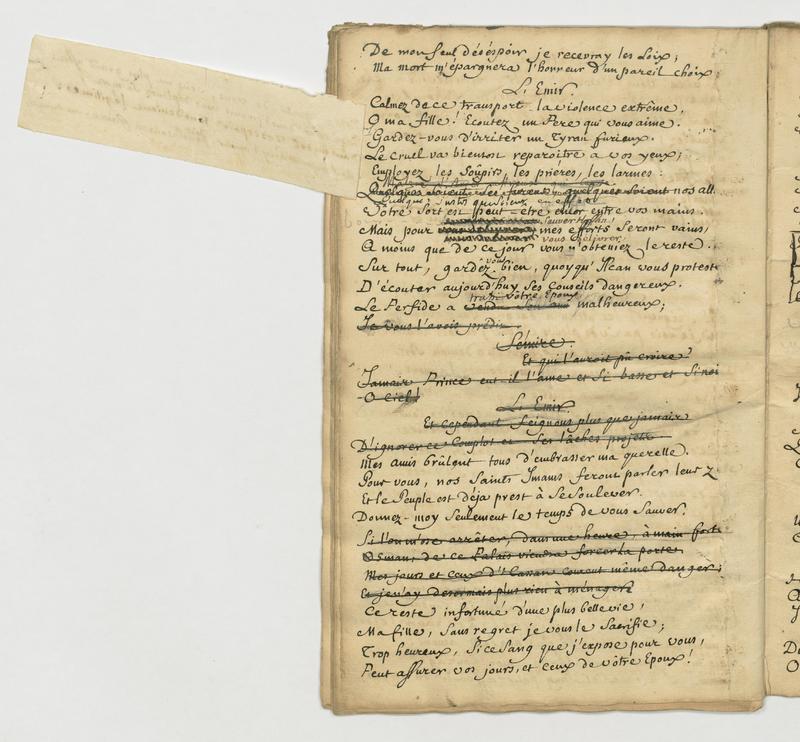 De mon seul désespoir je recevray les Loix;
Ma mort m'épargnera l'horreur d'un pareil choix
L'Emir.
Calmez de ce transport la violence extrême,
O ma fille! Ecoutez un Pere qui vous aime.
Gardez-vous d'irriter un Tyran furieux.
Le cruel va bientost reparoitre a vos yeux;
Employez les soûpirs, les prieres, les larmes:
Quelques soient ses fureurs, quelques soient nos all
Vôtre sort est peut-etre encor entre vos mains.
Mais pour mes efforts seront vains,
vous délivrer
A moins que de ce jour vous n'obteniez le reste.
Sur tout, gardez vous bien, quoyqu'Ilcan vous protest
D'écouter aujourd'huy ses conseils dangereux.
trahi vôtre Epoux
Le Perfide a vendu malheureux;
Je vous l'avois prédit.
Sémire.
Et qui l'auroit pû croire?
Jamais Prince eut-il l'ame et si basse et si noi
O Ciel!
L'Emir.
Et cependant feignons plus que jamais
D'ignorer ce Complot et ses lâches projets
Mes amis brûlent tous d'embrasser ma querelle.
Pour vous, nos saints Imams feront parler leur z
Et le Peuple est déja prest à se soulever.
Donnez-moy seulement le temps de vous sauver.
Si l'on m'ose arrêter, dans une heure, à main fort
Osman, de ce Palais viendra forcer la porte
Mes jours et ceux d'Hassan courent même danger;
Et je n'ay desormais plus rien à ménager
Ce reste infortuné d'une plus belle vie,
Ma fille, sans regret je vous le sacrifie;
Trop heureux, si ce sang que j'expose pour vous,
Peut assurer vos jours, et ceux de vôtre Epoux!